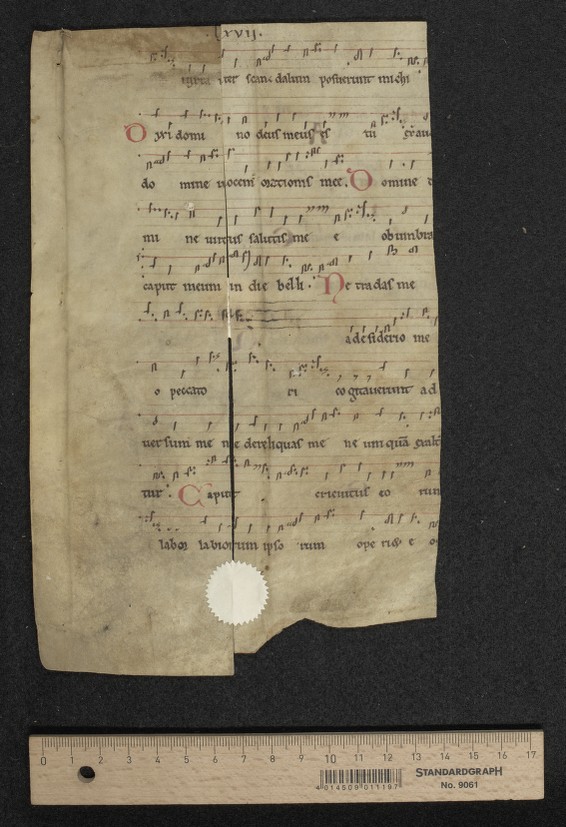 .lxvij.
iuxta iter scandalum posuerunt michi
Dixi domi no deus meus es tu exau
do mine uocem orationis mee. Domine d
mi ne uirtus salutis me e obumbra
caput meum in die belli. Ne tradas me
a desiderio me
o peccato ri cogitauerunt ad
uersum me ne derelinquas me ne umquã exalt
tur. Caput circuitus eo rum
labor labiorum ipso rum ope
STANDARDGRAPH
No. 9061
0 1 2 3 4 5 6 7 8 9 10 11 12 13 14 15 16 17
4 014509 011197